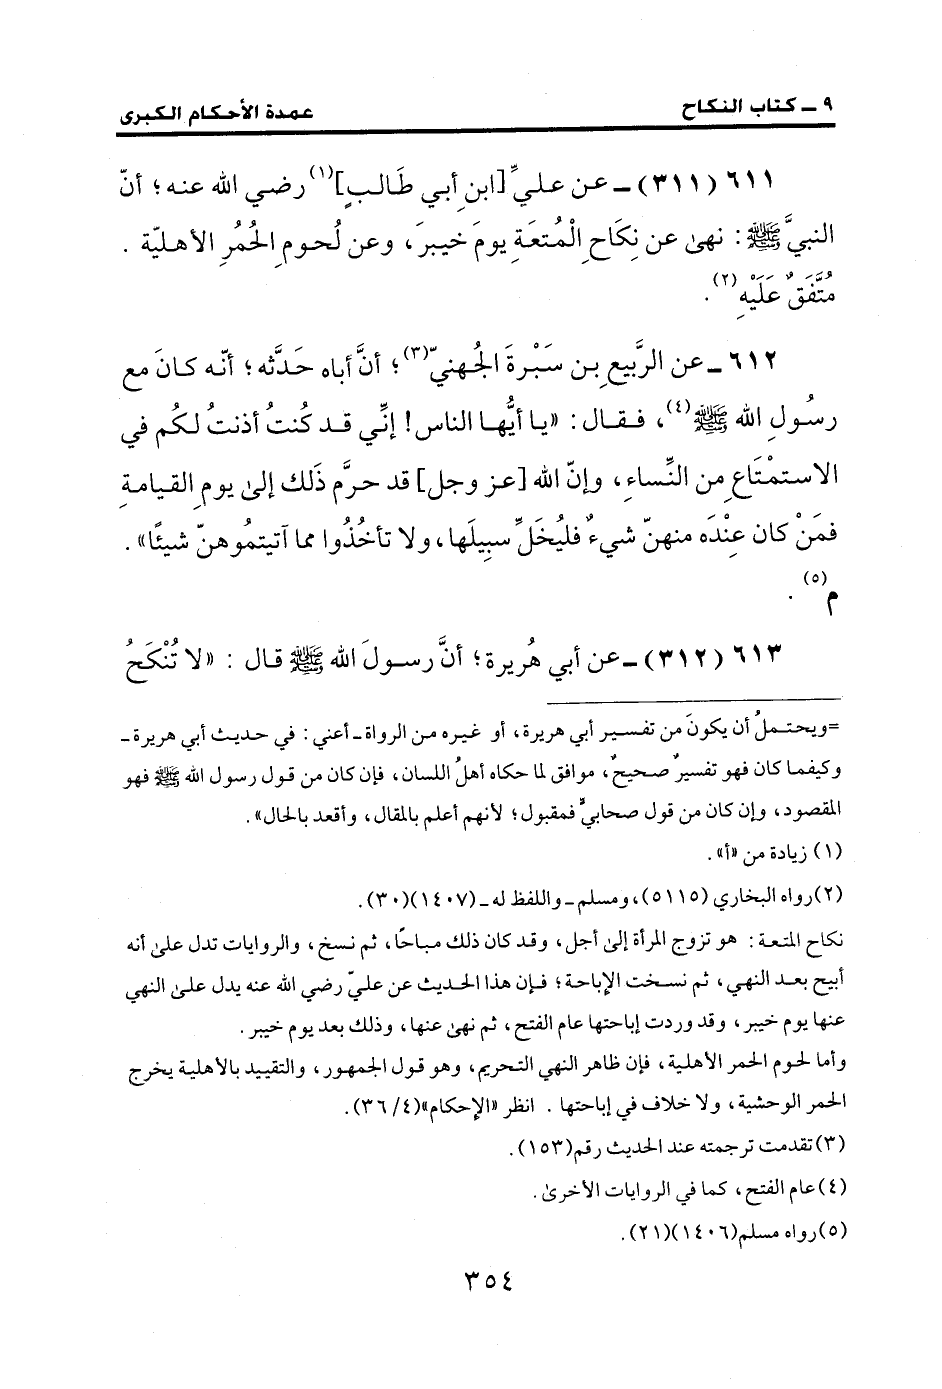 ٩ ــ كتاب النكاح عمدة الأحكام الكبرى
٦١١ (٣١١) ــ عن عليٍّ [ابنِ أبي طَالبٍ](١) رضي الله عنه؛ أنّ
النبيَّ ﷺ: نهىٰ عن نِكَاحِ الْمُتعَةِ يومَ خيبرَ، وعن لُحومِ الحُمُرِ الأهليّة.
مُتَّفَقٌ عَلَيْهِ(٢).
٦١٢ ــ عن الرَّبيعِ بن سَبْرةَ الجُهنيّ(٣)؛ أنَّ أباه حَدَّثه؛ أنّه كانَ مع
رسُولِ الله ﷺ(٤)، فـقـال: «يـا أيُّهـا الناس! إنِّي قـد كُنتُ أذنتُ لكُم في
الاستمْتَاعِ من النِّساءِ، وإنّ الله [عز وجل] قد حرَّم ذَلك إلىٰ يومِ القيامةِ
فمَنْ كان عِنْدَه منهنّ شيءٌ فليُخَلِّ سبِيلَها، ولا تأخُذُوا مما آتيتمُوهنّ شيئًا».
م(٥).
٦١٣ (٣١٢) ــ عن أبي هُريرة؛ أنَّ رسولَ الله ﷺ قال: «لا تُنْكَحُ
=ويحتملُ أن يكونَ من تفسير أبي هريرة، أو غيره من الرواة ــ أعني: في حديث أبي هريرة ــ
وكيفما كان فهو تفسيرٌ صحيحٌ، موافق لما حكاه أهلُ اللسان، فإن كان من قول رسول الله ﷺ فهو
المقصود، وإن كان من قول صحابيٍّ فمقبول؛ لأنهم أعلم بالمقال، وأقعد بالحال».
(١) زيادة من «أ».
(٢) رواه البخاري (٥١١٥)، ومسلم ــ واللفظ له ــ (١٤٠٧)(٣٠).
نكاح المتعة: هو تزوج المرأة إلىٰ أجل، وقد كان ذلك مباحًا، ثم نسخ، والروايات تدل علىٰ أنه
أبيح بعد النهي، ثم نسخت الإباحة؛ فإن هذا الحديث عن عليّ رضي الله عنه يدل علىٰ النهي
عنها يوم خيبر، وقد وردت إباحتها عام الفتح، ثم نهىٰ عنها، وذلك بعد يوم خيبر.
وأما لحوم الحمر الأهلية، فإن ظاهر النهي التحريم، وهو قول الجمهور، والتقييد بالأهلية يخرج
الحمر الوحشية، ولا خلاف في إباحتها. انظر «الإحكام»(٤/ ٣٦).
(٣) تقدمت ترجمته عند الحديث رقم (١٥٣).
(٤) عام الفتح، كما في الروايات الأخرىٰ.
(٥) رواه مسلم (١٤٠٦)(٢١).
٣٥٤